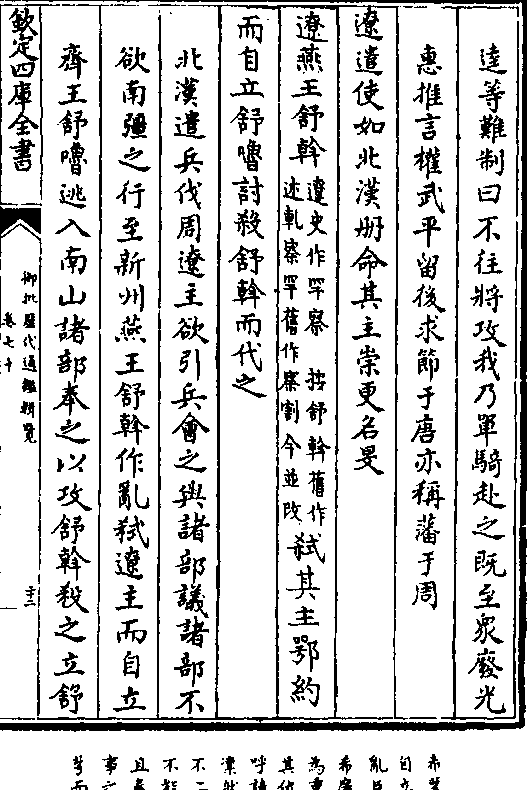 逵等難制曰不往將攻我乃單騎赴之既至衆廢光
惠推言權武平留後求節于唐亦稱藩于周
遼遣使如北漢册命其主崇更名旻
遼燕王舒幹遼史作罕察　按舒幹舊作
述軋察罕舊作察割今並改弑其主鄂約
而自立舒嚕討殺舒幹而代之
北漢遣兵伐周遼主欲引兵會之與諸部議諸部不
欲南彊之行至新州燕王舒幹作亂弑遼主而自立
齊王舒嚕逃入南山諸部奉之以攻舒幹殺之立舒
欽定四庫全書
御批歷代通鑑輯覽
卷七十